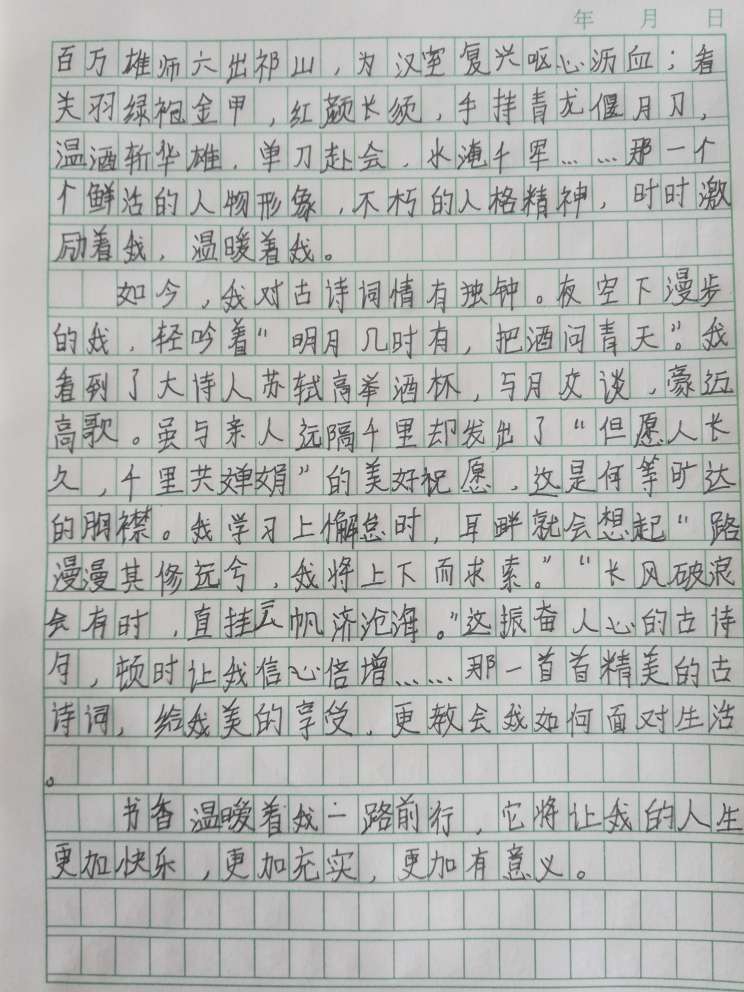 年 月 日
百万雄师六出祁山，为汉室复兴呕心沥血；看
关羽绿袍金甲，红颜长须，手持青龙偃月刀，
温酒斩华雄，单刀赴会，水淹千军……那一个
个鲜活的人物形象，不朽的人格精神，时时激
励着我，温暖着我。
如今，我对古诗词情有独钟。夜空下漫步
的我，轻吟着“明月几时有，把酒问青天”。我
看到了大诗人苏轼高举酒杯，与月交谈，豪迈
高歌。虽与亲人远隔千里却发出了“但愿人长
久，千里共婵娟”的美好祝愿，这是何等旷达
的胸襟。我学习上懈怠时，耳畔就会想起“路
漫漫其修远兮，我将上下而求索。”“长风破浪
会有时，直挂云帆济沧海。”这振奋人心的古诗
句，顿时让我信心倍增……那一首首精美的古
诗词，给我美的享受，更教会我如何面对生活
。
书香温暖着我一路前行，它将让我的人生
更加快乐，更加充实，更加有意义。